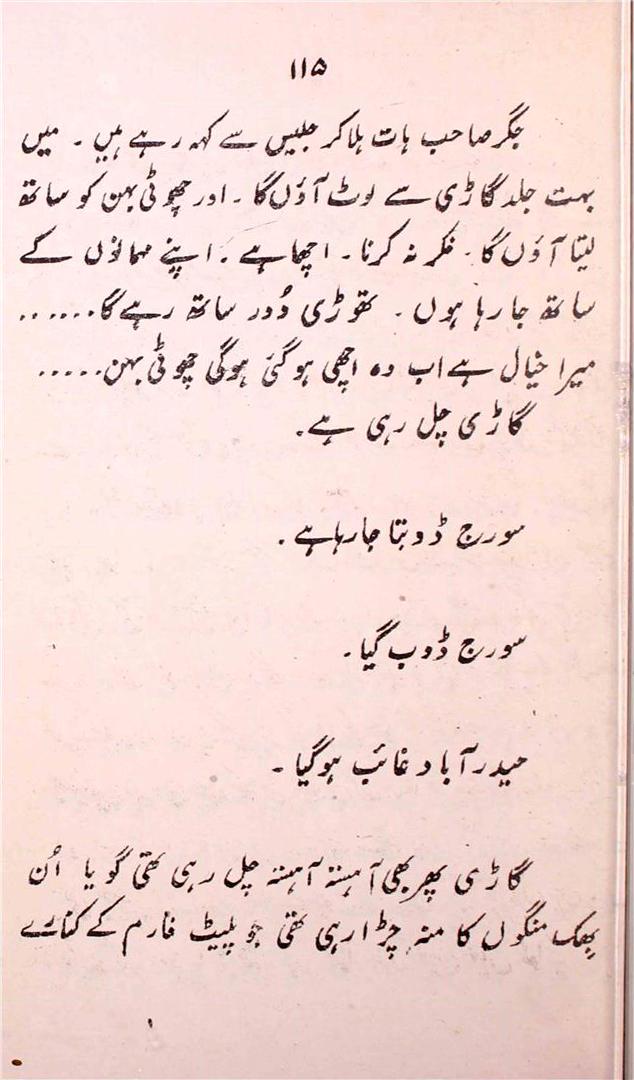 ۱۱۵
جگر صاحب ہات ہلا کر جلیس سے کہہ رہے ہیں ۔ میں
بہت جلد گاڑی سے لوٹ آؤں گا ۔ اور چھوٹی بہن کو ساتھ
لیتا آؤں گا ۔ فکر نہ کرنا ۔ اچھا ہے ۔ اپنے مہمانوں کے
ساتھ جا رہا ہوں ۔ تھوڑی دُور ساتھ رہے گا......
میرا خیال ہے اب وہ اچھی ہو گئی ہوگی چھوٹی بہن.....
گاڑی چل رہی ہے ۔
سورج ڈوبتا جا رہا ہے ۔
سورج ڈوب گیا ۔
حیدرآباد غائب ہوگیا ۔
گاڑی پھر بھی آہستہ آہستہ چل رہی تھی گویا اُن
بھک منگوں کا منہ چڑا رہی تھی جو پلیٹ فارم کے کنارے